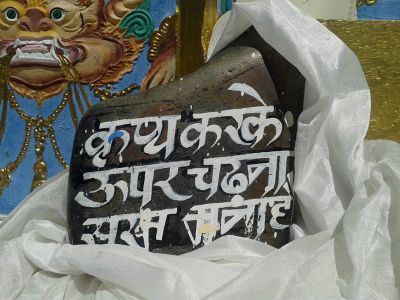 कृप्य करके
ऊपर चढ़ना
सख्त मनाहै